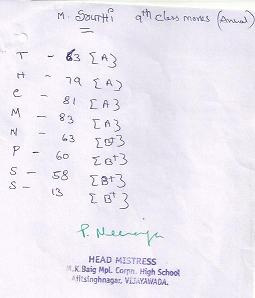 M. South 9th class marks (Annual)
T - 63 [A}
H - 79 [A}
E - 81 [A}
M - 83 [A}
N - 63 [B+}
P - 60 [B+}
S - 58 [B+}
S - 13 [B+}
P. Neeraja
HEAD MISTRESS
M.K.Baig Mpl. Corpn. High School
Ajitsinghnagar, VIJAYAWADA.